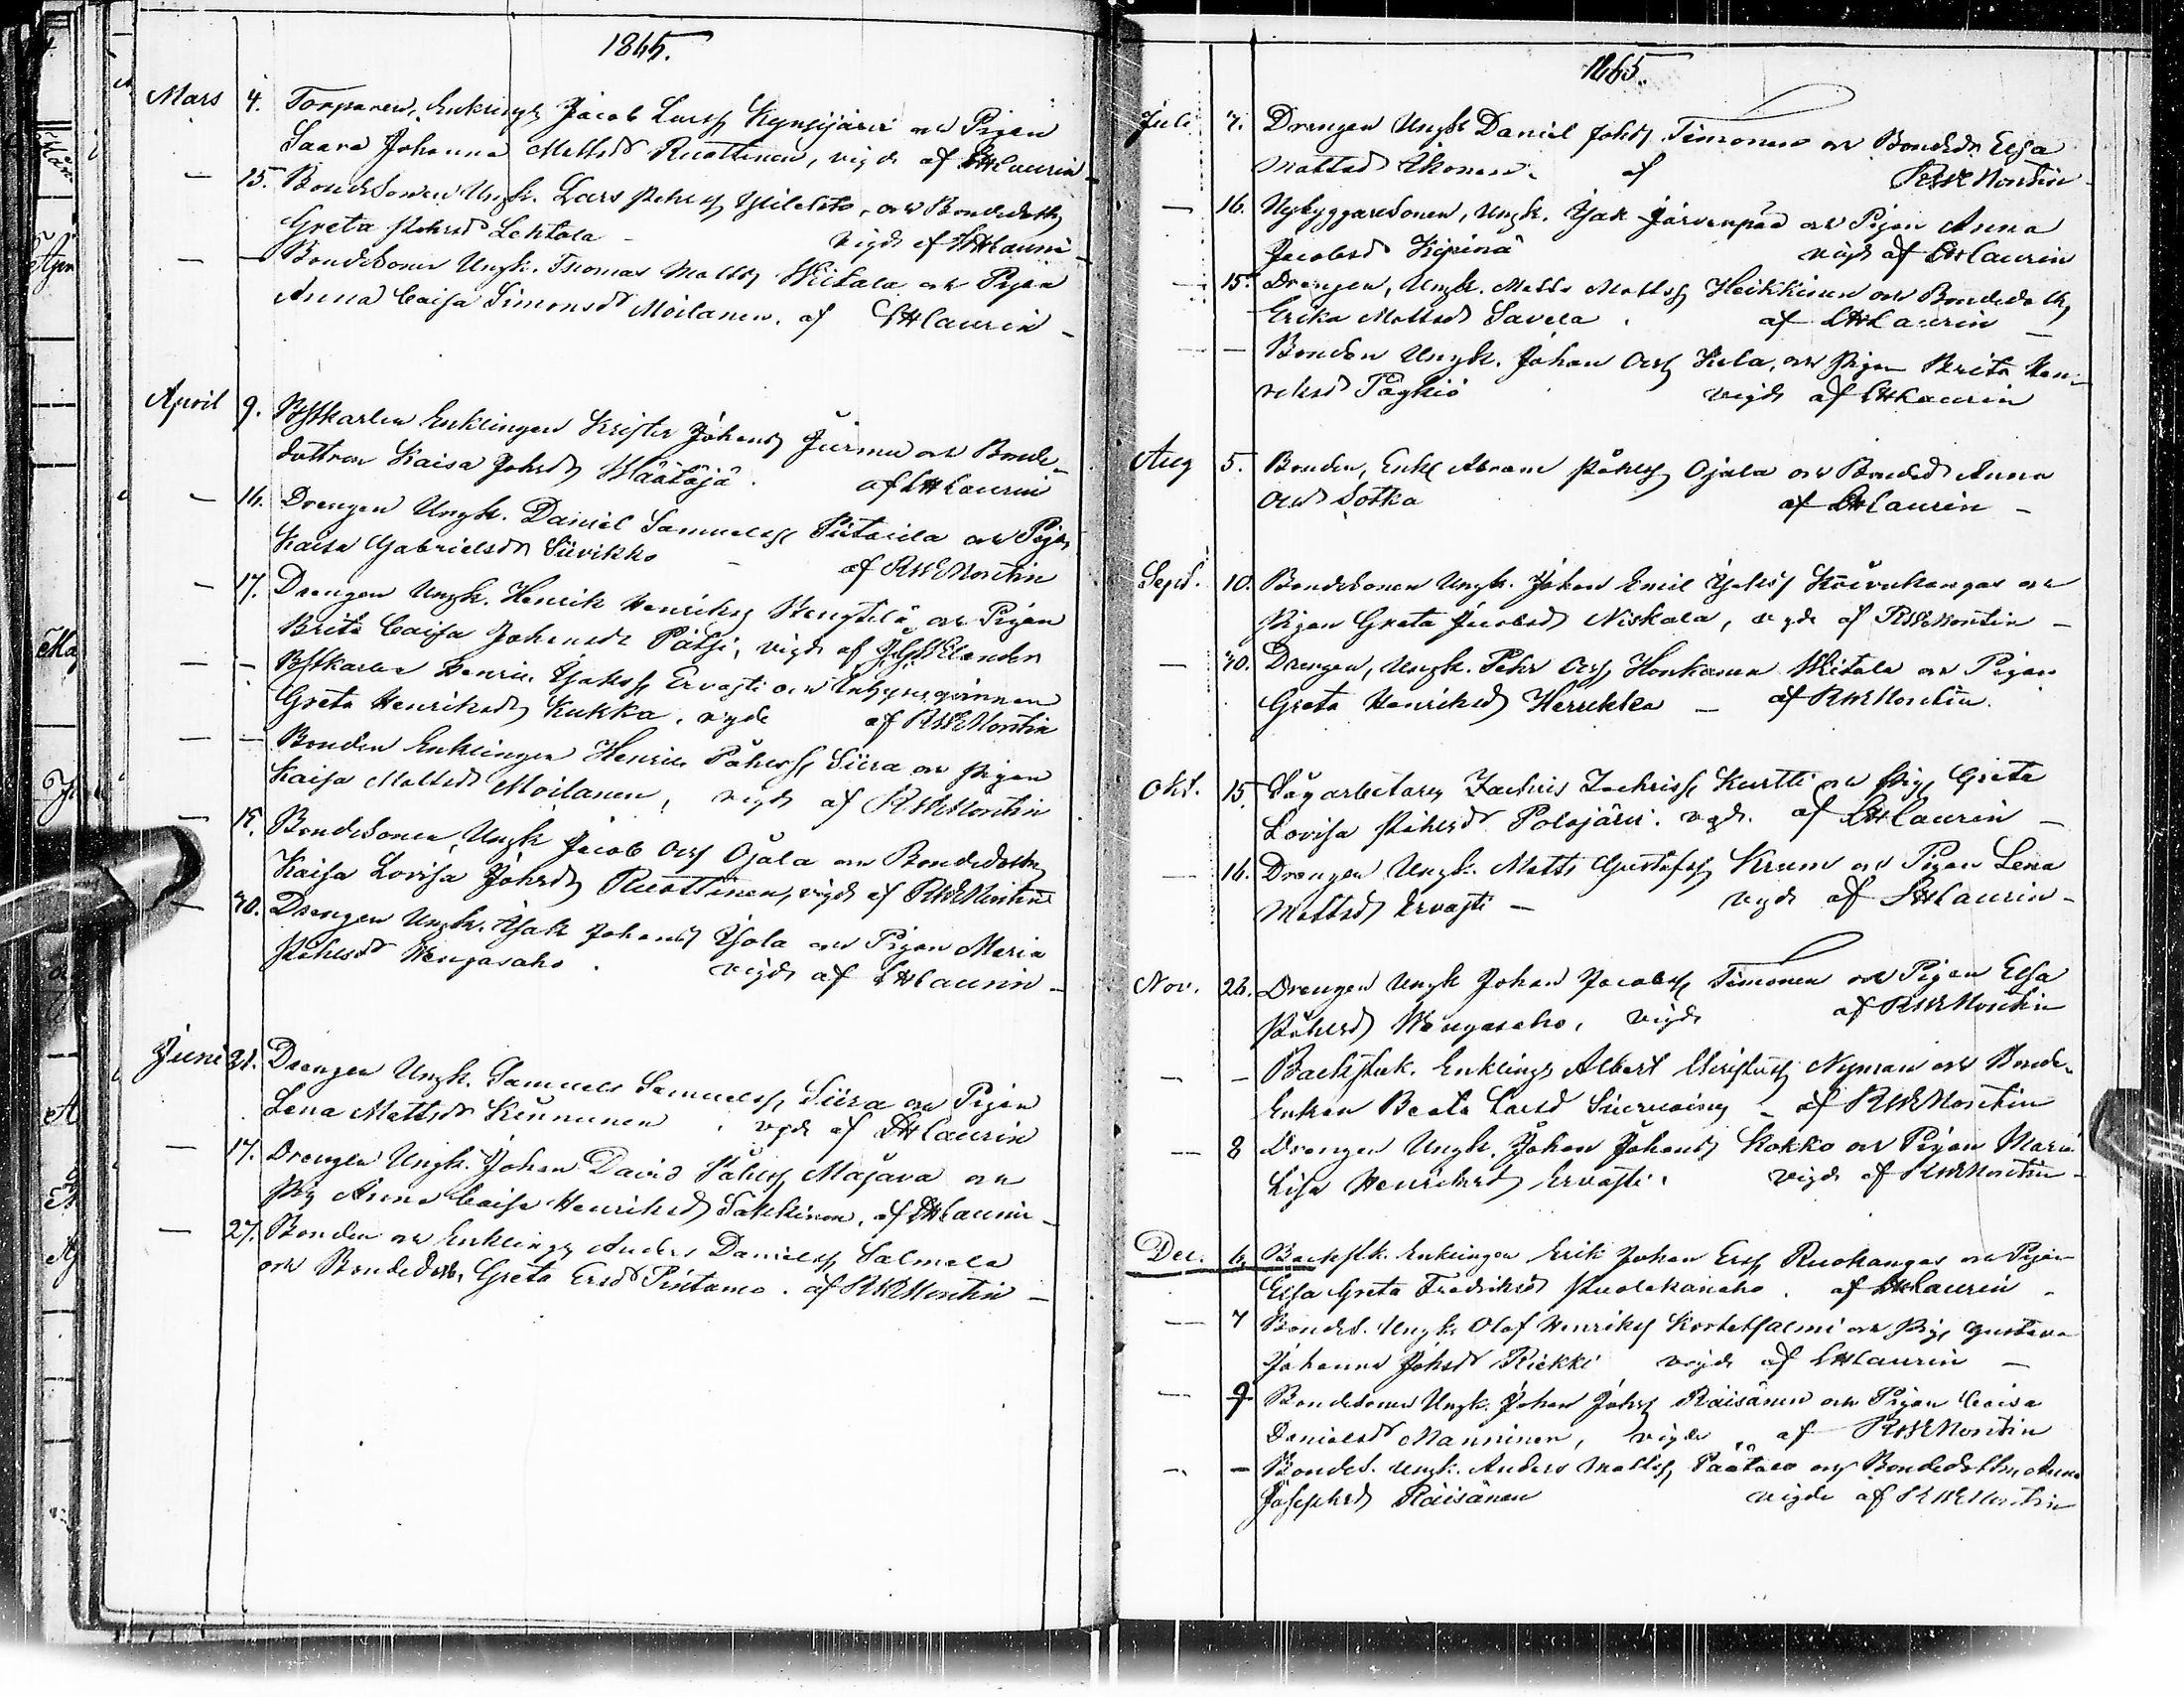 1865.
Mars 4. Torparen, Enklingen Jacob Larss Kynsijärvi och Pigan
Saara Johanna Mattsdr Ruottinen, vigde af LHLaurin
— 25. Bondesonen Ungk. Lars Pehrss Ylilehto, och Bondedottr
Greta Pehrsdr Lehtola — vigde af LHLaurin
— — Bondesonen Ungk. Thomas Mattss Witala och Pigan
Anna Caisa Simonsdr Moilanen. af LHLaurin —
April 9. Postkarlen Enklingen Krister Johanss Jurmu och Bonde-
dottren Kaisa Johsdr Määtäjä. af LHLaurin
— 16. Drengen Ungk. Daniel Samuelss Piitaila och Pigan
Kaisa Gabrielsdr Siivikko — af RWEMontin
— 17. Drengen Ungk. Henrik Henrikss Wengtilä och Pigan
Brita Caisa Johansdr Pätsi, vigde af Elander
— — Postkarlen Henric Isakss Ervasti och Inhysesqvinnan
Greta Henriksdr Kukka, vigde af RWEMontin
— — Bonden Enklingen Henric Påhlss Siira och Pigan
Kaisa Mattsdr Moilanen, vigde af RWEMontin
— 19. Bondesonen, Ungk Jacob Olss Ojala och Bondedottr
Kaisa Lovisa Johsdr Ruottinen, vigde af RWEMontin
— 30. Drengen Ungk. Isak Johanss Isola och Pigan Maria
Påhlsdr Wengasaho. vigde af LHLaurin —
Juni 21. Drengen Ungk. Samuel Samuelss Siira och Pigan
Lena Mattsdr Kinnunen, vigde af LHLaurin
— 17. Drengen Ungk. Johan David Påhlss Majava och
Pig Anna Caisa Henriksdr Sakkinen, af LHLaurin —
— 27. Bonden och Enklingen Anders Danielss Salmela
och Bondedottr, Greta Ersdr Pintamo. af RWEMontin —
1865.
Juli 7. Drengen Ungk Daniel Johss Timonen och Bondedr Elsa
Mattsdr Ikonen. af RWEMontin
— 16. Nybyggaresonen, Ungk. Isak Järvenpää och Pigan Anna
Jacobsdr Kipinä vigde af LHLaurin
— 15. Drengen, Ungk. Matts Mattss Heikkinen och Bondedottr
Erika Mattsdr Savela. af LHLaurin —
— — Bonden Ungk. Johan Olss Kela, och Pigan Brita Hen-
riksdr Törhiö vigde af LHLaurin
Aug 5. Bonden, Enkl Abram Påhlss Ojala och Bondedr Anna
Olsdr Sotka af LHLaurin —
Sept. 10. Bondesonen Ungk. Johan Emil Isakss Koivukangas och
Pigan Greta Jacobsdr Niskala, vigde af RWEMontin —
— 30. Drengen, Ungk. Pehr Olss Honkanen Witala och Pigan
Greta Henriksdr Herukka — af RWEMontin.
Okt. 15 Sågarbetaren Zachris Zachriss Kurtti och Pig Greta
Lovisa Påhlsdr Polojärvi. vigde. af LHLaurin —
— 16. Drengen Ungk. Matts Gustafss Krum och Pigan Lena
Mattsdr Ervasti — vigde af LHLaurin —
Nov. 26. Drengen Ungk Johan Jacobss Timonen och Pigan Elsa
Påhlsdr Wengasaho, vigde af RWEMontin
— — Backstuk. Enklingen Albert Christerss Nyman och Bonde-
Enkan Beata Larsdr Siurvainen — af RWEMontin
— 8 Drengen Ungk. Johan Johanss Kokko och Pigan Maria
Lisa Henriksdr Ervasti. vigde af RWEMontin —
Dec. 6 Backstk. Enklingen Erik Johan Erss Ruokangas och Pigan
Elsa Greta Fredriksdr Puolakanaho. af LHLaurin —
— 7 Bondes. Ungk Olof Henrikss Kortetsalmi och Pig Gustava
Johanna Johsdr Riekki vigde af LHLaurin —
— 9 Bondesonen Ungk. Johan Johss Räisänen och Pigan Caisa
Danielsdr Manninen, vigde af RWEMontin
— — Bondes. Ungk. Anders Mattss Päätalo och Bondedottr Anna
Josephsdr Räisänen vigde af RWEMontin